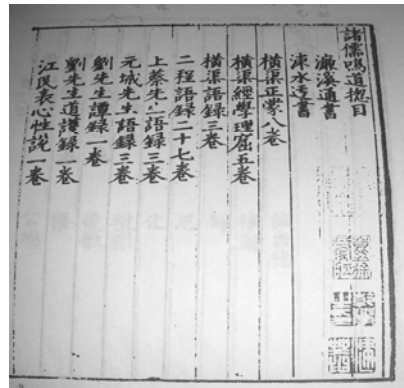 諸儒鳴道總目
濂溪通書
涑水迂書
橫渠正蒙八卷
橫渠經學理窟五卷
橫渠語録三卷
二程語録二十七卷
上蔡先生語録三卷
元城先生語録三卷
劉先生譚録一卷
劉先生道護録一卷
江民表心性說一卷